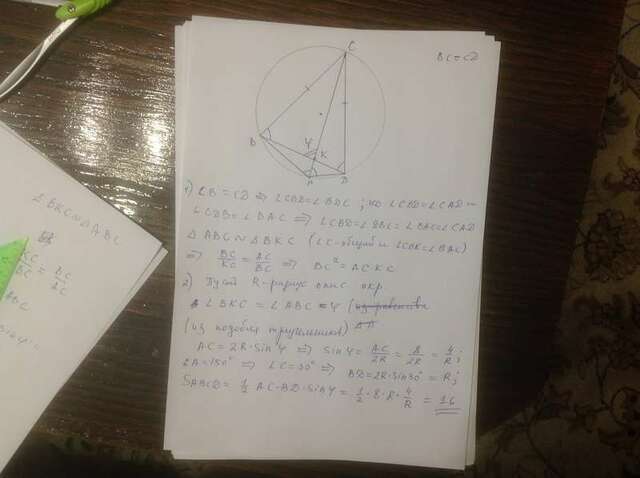 BC=CD
C
B
φ
K
A
D
1) CB = CD ⇒ ∠CBD=∠BDC ; но ∠CBD=∠CAD и
∠CDB=∠BAC ⇒ ∠CBD=∠DBC=∠BAC=∠CAD
△ ABC ∾ △BKC (∠C-общий и ∠CBK=∠BAC)
⇒ BC/KC = AC/BC ⇒ BC² = AC·KC
2) Пусть R-радиус опис окр.
∠BKC = ∠ABC = φ (из равенства
(из подобия треугольников)
AC = 2R·Sin φ ⇒ Sin φ = AC/2R = 8/2R = 4/R;
∠A=150° ⇒ ∠C=30° ⇒ BD=2R·Sin30° = R;
SABCD = 1/2 AC·BD·Sin φ = 1/2·8·R·4/R = 16
△BKC∾△ABC
KC
BC
= BC/AC
ABC